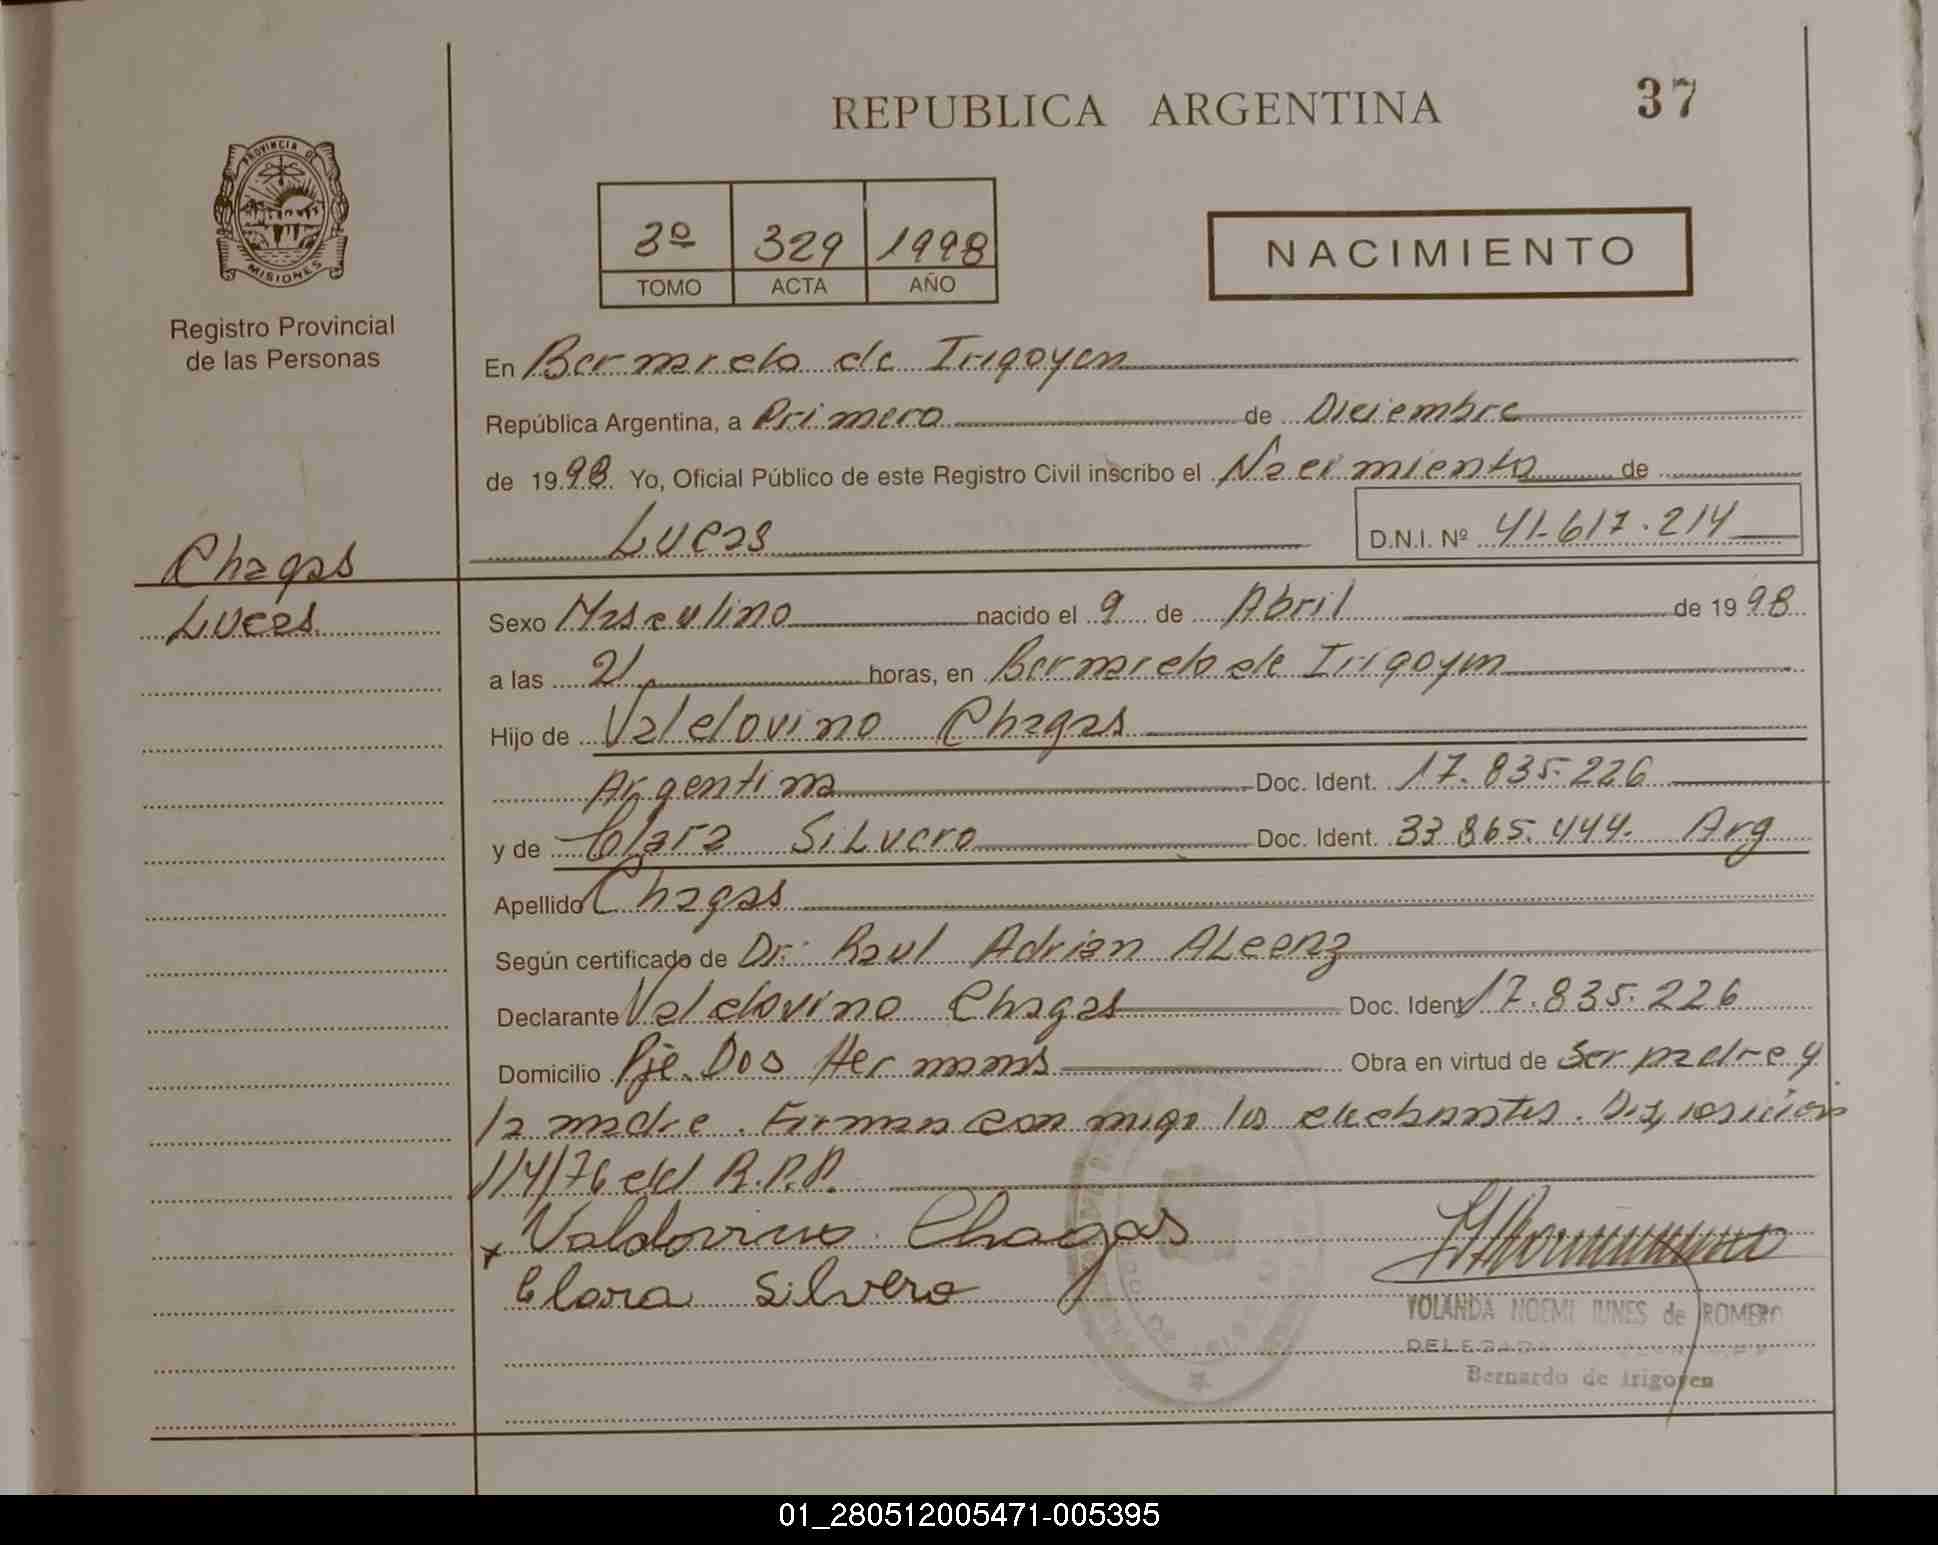 REPUBLICA ARGENTINA
37
PROVINCIA DE
MISIONES
Registro Provincial
de las Personas
3º 329 1998
TOMO ACTA AÑO
NACIMIENTO
En Bernardo de Irigoyen
República Argentina, a Primero de Diciembre
de 1998. Yo, Oficial Público de este Registro Civil inscribo el Nacimiento de
Lucas
D.N.I. Nº 41.617.214
Chagas
Lucas
Sexo Masculino nacido el 9 de Abril de 1998
a las 21 horas, en Bernardo de Irigoyen
Hijo de Valdovino Chagas
Argentina Doc. Ident. 17.835.226
y de Clara Silvero Doc. Ident. 33.865.444. Arg
Apellido Chagas
Según certificado de Dr. Raul Adrian
Declarante Valdovino Chagas Doc. Ident 17.835.226
Domicilio Pje. Dos Hermanas Obra en virtud de Ser padre y
la madre. Firman con migo los declarantes. Disposicion
114/76 del R.P.P.
x Valdovino Chagas
Clara Silvero
YOLANDA NOEMI IUNES de ROMERO
DELEGADA
Bernardo de Irigoyen
01_280512005471-005395